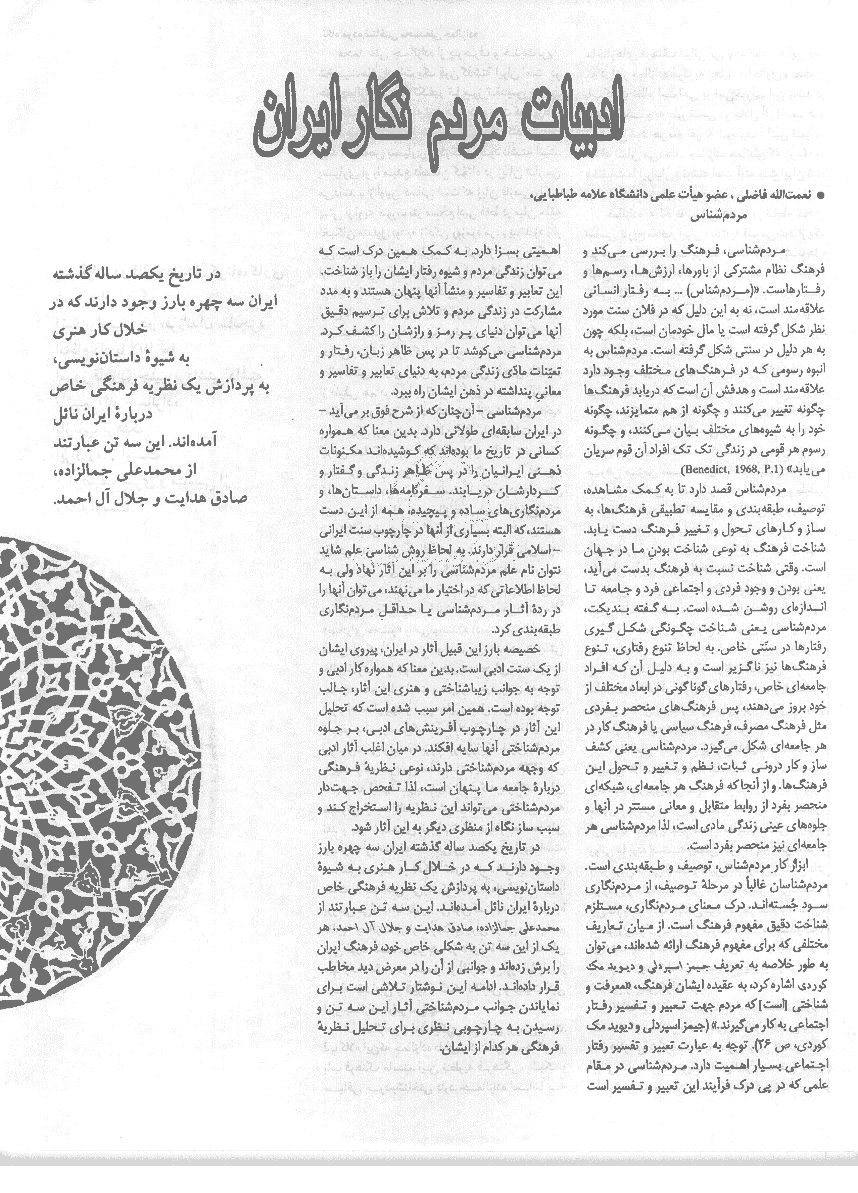 ادبیات مردم نگار ایران
● نعمت‌الله فاضلی، عضو هیأت علمی دانشگاه علامه طباطبایی،
مردم‌شناس
مردم‌شناسی، فرهنگ را بررسی می‌کند و
فرهنگ نظام مشترکی از باورها، ارزش‌ها، رسم‌ها و
رفتارهاست. «(مردم‌شناس) ... به رفتار انسانی
علاقه‌مند است، نه به این دلیل که در فلان سنت مورد
نظر شکل گرفته است یا مال خودمان است، بلکه چون
به هر دلیل در سنتی شکل گرفته است. مردم‌شناس به
انبوه رسومی که در فرهنگ‌های مختلف وجود دارد
علاقه‌مند است و هدفش آن است که دریابد فرهنگ‌ها
چگونه تغییر می‌کنند و چگونه از هم متمایزند، چگونه
خود را به شیوه‌های مختلف بیان می‌کنند، و چگونه
رسوم هر قومی در زندگی تک تک افراد آن قوم سریان
می‌یابد» (Benedict, 1968, P.1)
مردم‌شناس قصد دارد تا به کمک مشاهده،
توصیف، طبقه‌بندی و مقایسه تطبیقی فرهنگ‌ها، به
ساز و کارهای تحول و تغییر فرهنگ دست یابد.
شناخت فرهنگ به نوعی شناخت بودن ما در جهان
است. وقتی شناخت نسبت به فرهنگ بدست می‌آید،
یعنی بودن و وجود فردی و اجتماعی فرد و جامعه تا
اندازه‌ای روشن شده است. به گفته بندیکت،
مردم‌شناسی یعنی شناخت چگونگی شکل گیری
رفتارها در سنّتی خاص. به لحاظ تنوع رفتاری، تنوع
فرهنگ‌ها نیز ناگزیر است و به دلیل آن که افراد
جامعه‌ای خاص، رفتارهای گوناگونی در ابعاد مختلف از
خود بروز می‌دهند، پس فرهنگ‌های منحصر بفردی
مثل فرهنگ مصرف، فرهنگ سیاسی یا فرهنگ کار در
هر جامعه‌ای شکل می‌گیرد. مردم‌شناسی یعنی کشف
ساز و کار درونی ثبات، نظم و تغییر و تحول این
فرهنگ‌ها. و از آنجا که فرهنگ هر جامعه‌ای، شبکه‌ای
منحصر بفرد از روابط متقابل و معانی مستتر در آنها و
جلوه‌های عینی زندگی مادی است، لذا مردم‌شناسی هر
جامعه‌ای نیز منحصر بفرد است.
ابزار کار مردم‌شناس، توصیف و طبقه‌بندی است.
مردم‌شناسان غالباً در مرحلهٔ توصیف، از مردم‌نگاری
سود جُسته‌اند. درک معنای مردم‌نگاری، مستلزم
شناخت دقیق مفهوم فرهنگ است. از میان تعاریف
مختلفی که برای مفهوم فرهنگ ارائه شده‌اند، می‌توان
به طور خلاصه به تعریف جیمز اسپردلی و دیوید مک
کوردی اشاره کرد، به عقیده ایشان فرهنگ، «معرفت و
شناختی [است] که مردم جهت تعبیر و تفسیر رفتار
اجتماعی به کار می‌گیرند.» (جیمز اسپردلی و دیوید مک
کوردی، ص ۲۶). توجه به عبارت تعبیر و تفسیر رفتار
اجتماعی بسیار اهمیت دارد. مردم‌شناسی در مقام
علمی که در پی درک فرآیند این تعبیر و تفسیر است
اهمیتی بسزا دارد. به کمک همین درک است که
می‌توان زندگی مردم و شیوه رفتار ایشان را باز شناخت.
این تعابیر و تفاسیر و منشأ آنها پنهان هستند و به مدد
مشارکت در زندگی مردم و تلاش برای ترسیم دقیق
آنها می‌توان دنیای پر رمز و رازشان را کشف کرد.
مردم‌شناسی می‌کوشد تا در پس ظاهر زبان، رفتار و
تعیّنات مادّی زندگی مردم، به دنیای تعابیر و تفاسیر و
معانی پنداشته در ذهن ایشان راه ببرد.
مردم‌شناسی – آن‌چنان که از شرح فوق بر می‌آید –
در ایران سابقه‌ای طولانی دارد. بدین معنا که همواره
کسانی در تاریخ ما بوده‌اند که کوشیده‌اند مکنونات
ذهنی ایرانیان را در پس ظاهر زندگی و گفتار و
کردارشان دریابند. سفرنامه‌ها، داستان‌ها، و
مردم‌نگاری‌های ساده و پیچیده، همه از این دست
هستند، که البته بسیاری از آنها در چارچوب سنت ایرانی
– اسلامی قرار دارند. به لحاظ روش شناسی علم شاید
نتوان نام علم مردم‌شناسی را بر این آثار نهاد ولی به
لحاظ اطلاعاتی که در اختیار ما می‌نهند، می‌توان آنها را
در ردهٔ آثار مردم‌شناسی یا حداقل مردم‌نگاری
طبقه‌بندی کرد.
خصیصه بارز این قبیل آثار در ایران، پیروی ایشان
از یک سنت ادبی است. بدین معنا که همواره کار ادبی و
توجه به جوانب زیباشناختی و هنری این آثار، جالب
توجه بوده است. همین امر سبب شده است که تحلیل
این آثار در چارچوب آفرینش‌های ادبی، بر جلوه
مردم‌شناختی آنها سایه افکند. در میان اغلب آثار ادبی
که وجهه مردم‌شناختی دارند، نوعی نظریهٔ فرهنگی
دربارهٔ جامعه ما پنهان است، لذا تفحص جهت‌دار
مردم‌شناختی می‌تواند این نظریه را استخراج کند و
سبب ساز نگاه از منظری دیگر به این آثار شود.
در تاریخ یکصد ساله گذشته ایران سه چهره بارز
وجود دارند که در خلال کار هنری به شیوهٔ
داستان‌نویسی، به پردازش یک نظریه فرهنگی خاص
دربارهٔ ایران نائل آمده‌اند. این سه تن عبارتند از
محمدعلی جمالزاده، صادق هدایت و جلال آل احمد. هر
یک از این سه تن به شکلی خاص خود، فرهنگ ایران
را برش زده‌اند و جوانبی از آن را در معرض دید مخاطب
قرار داده‌اند. ادامه این نوشتار تلاشی است برای
نمایاندن جوانب مردم‌شناختی آثار این سه تن و
رسیدن به چارچوبی نظری برای تحلیل نظریهٔ
فرهنگی هر کدام از ایشان.
در تاریخ یکصد ساله گذشته
ایران سه چهره بارز وجود دارند که در
خلال کار هنری
به شیوهٔ داستان‌نویسی،
به پردازش یک نظریه فرهنگی خاص
دربارهٔ ایران نائل
آمده‌اند. این سه تن عبارتند
از محمدعلی جمالزاده،
صادق هدایت و جلال آل احمد.